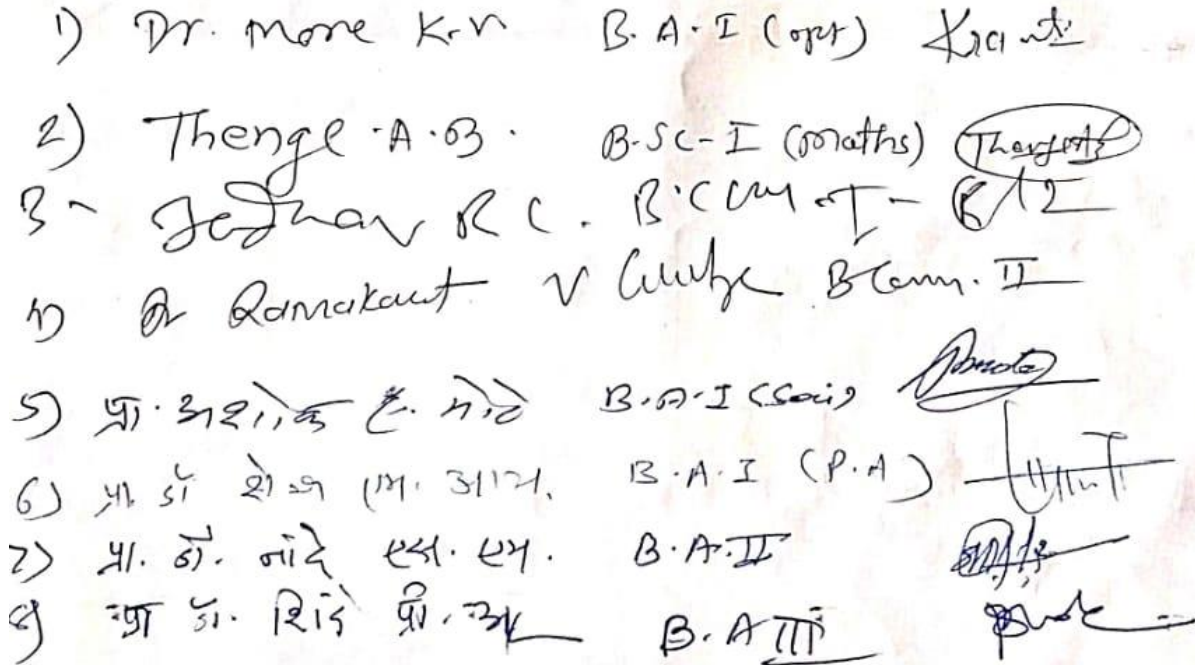 1) Dr. More K.V. B.A.I (opt) Kranti
2) Thenge A.B. B.SC-I (Maths)
3 - Jadhav R C. B.Com - I -
4) Dr Ramakant V B.Com. II
5) प्रा. अशोक ह. मोटे B.A.I (Soci)
6) प्रा. डॉ शेख एम. आय. B.A.I (P.A)
7) प्रा. डॉ. नांदे एस. एम. B.A.II
8) प्रा डॉ. शिंदे प्री. अ B.A III